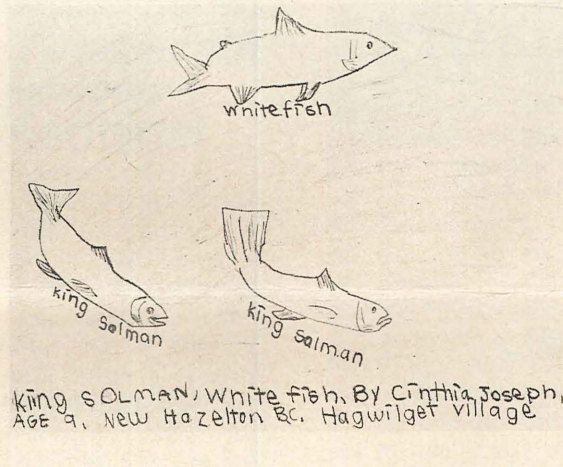 whitefish
king Solman
king Salman
King SOLMAN, White fish, By Cinthia Joseph,
AGE 9, New Hazelton B.C. Hagwilget Village